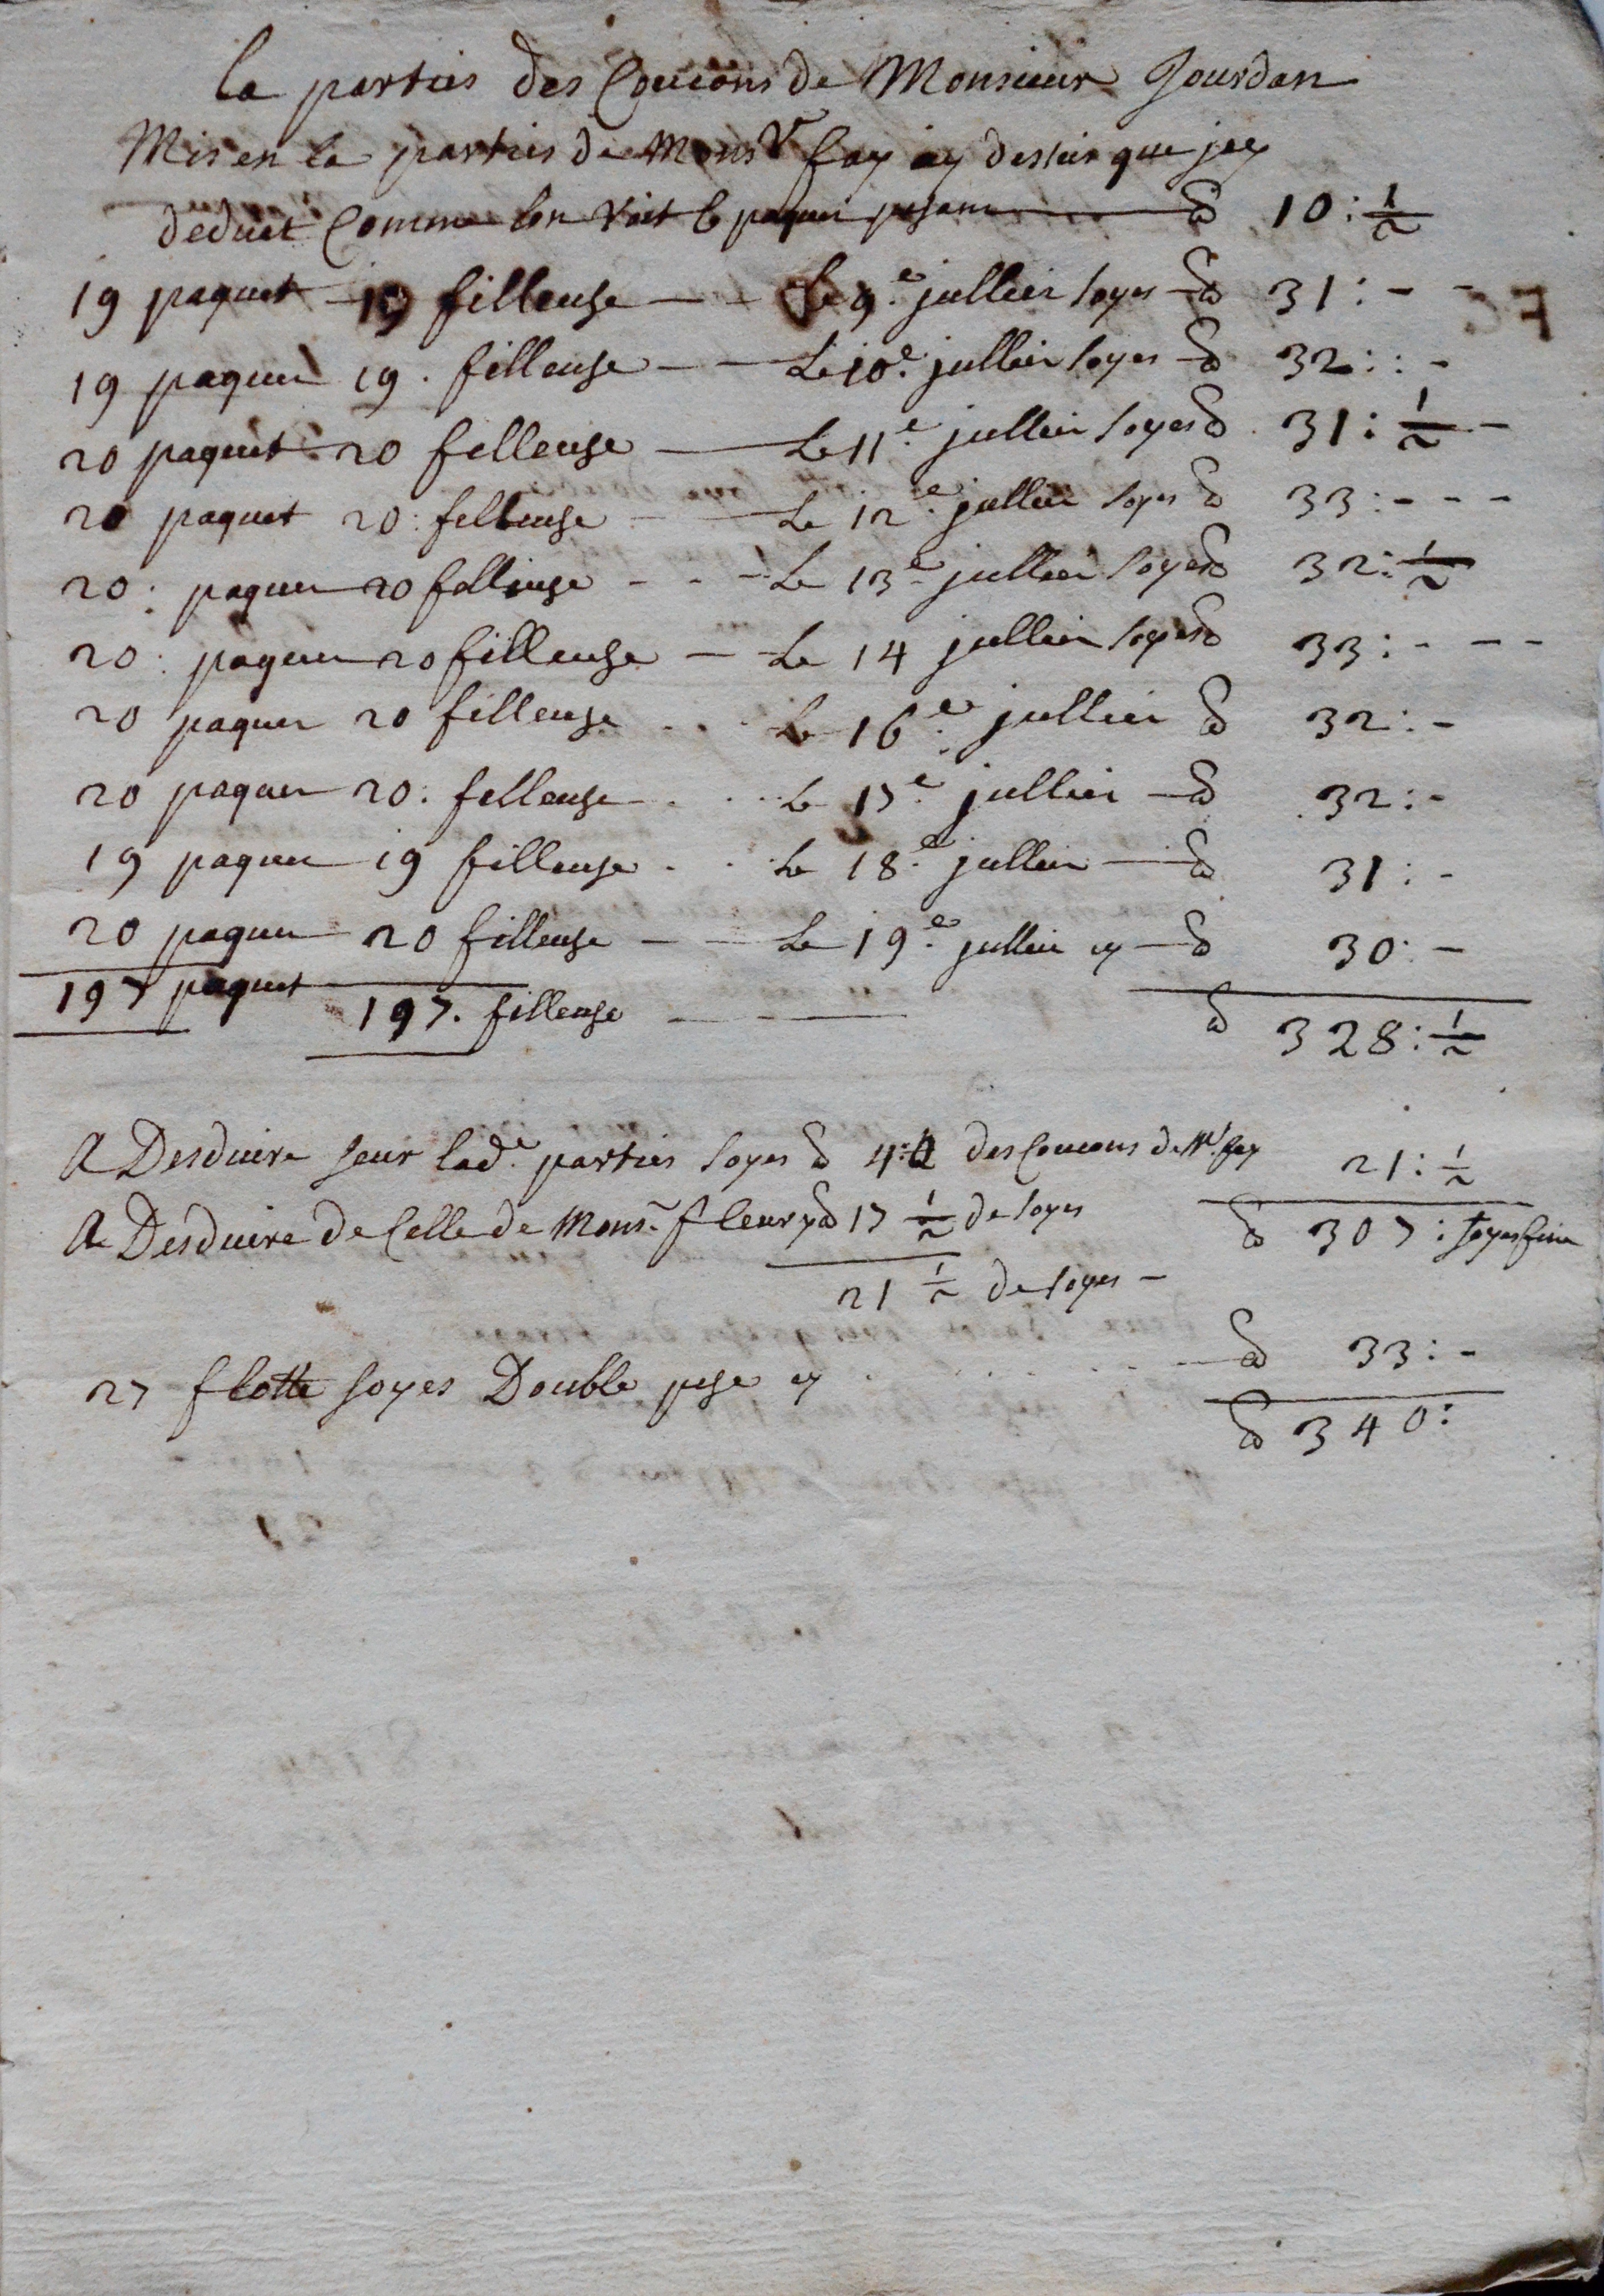 La parties des Coucons de Monsieur Jourdan
Mis en la parties de Monsr fay cy dessus que jay
deduet Comme lon voit 6 paquet pesant ——— ℔ 10 : 1/2
19 paquet 19 filleuse — - Le 9e jullier soyes ℔ 31 : - -
19 paquet 19 . filleuse — — Le 10e jullier soyes ℔ 32 : : -
20 paquet 20 filleuse — Le 11e jullier soyes ℔ 31 : 1/2 -
20 paquet 20 : filleuse — Le 12e jullier soyes ℔ 33 : - - -
20 : paquet 20 filleuse - - - Le 13e jullier soyes ℔ 32 : 1/2
20 : paquet 20 filleuse — - Le 14 jullier soyes ℔ 33 : - - -
20 paquet 20 filleuse . . . Le 16e jullier ℔ 32 : -
20 paquet 20 : filleuse . . . Le 17e jullier — ℔ 32 : -
19 paquet 19 filleuse . . . Le 18e jullier — ℔ 31 : -
20 paquet 20 filleuse — — Le 19e jullier cy — ℔ 30 : -
197 paquet 197 . filleuse — — — ℔ 328 : 1/2
A Desduire seur lade parties soyes ℔ 4 : des Coucons de Mr fay 21 : 1/2
A Desduire de Celle de Mons fleury ℔ 17 1/2 de soyes ℔ 307 : soyes fine
21 1/2 de soyes -
27 flotte soyes Double pese cy . . . . . ℔ 33 : -
℔ 340 :